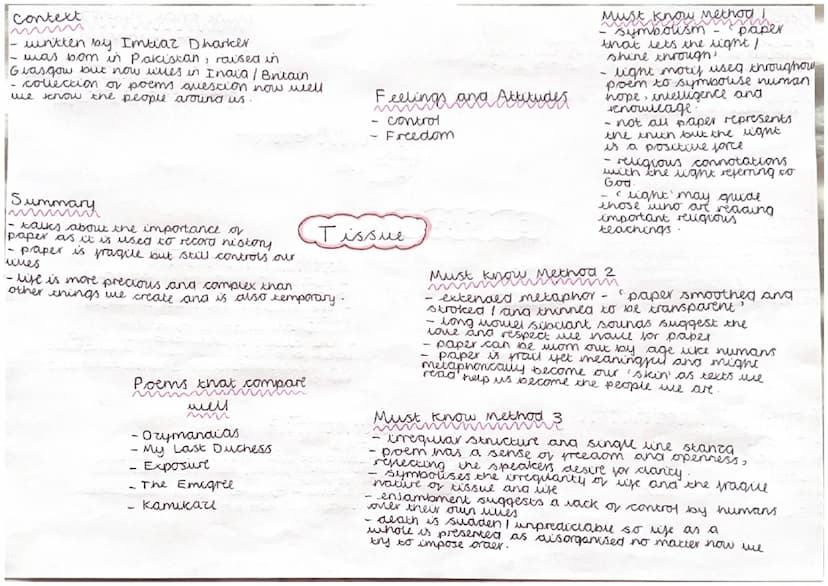 Context
- written by Imtiaz Dharker
- was born in Pakistan, raised in
Glasgow but now lives in India/Britain
- collection of poems question how well
we know the people around us.
Feelings and Attitudes
- Control
- Freedom
Must Know Method 1
- symbolism - 'paper
that lets the light/
shine through'
- light motif used throughout
poem to symbolise human
hope, intelligence and
knowledge.
- not all paper represents
the truth but the light
is a positive force
- religious connotations
with the light referring to
God.
- 'light' may guide
those who are reading
important religious
teachings.
Summary
- talks about the importance of
paper as it is used to record history
- paper is fragile but still controls our
lives
- life is more precious and complex than
other things we create and is also temporary.
Tissue
Must Know Method 2
- extended metaphor - 'paper smoothed and
stroked/and thinned to be transparent'
- long vowel sibilant sounds suggest the
love and respect we have for paper
- paper can be worn out by age like humans
- paper is frail yet meaningful and might
metaphorically become our 'skin' as texts we
read help us become the people we are.
Poems that compare
well
- Ozymandias
- My Last Duchess
- Exposure
- The Emigree
- Kamikaze
Must Know Method 3
- irregular structure and single line stanza
- poem has a sense of freedom and openness,
reflecting the speakers desire for clarity.
- symbolises the irregularity of life and the fragile
nature of tissue and life
- enjambment suggests a lack of control by humans
over their own lives
- death is sudden/unpredictable so life as a
whole is presented as disorganised no matter how we
try to impose order.